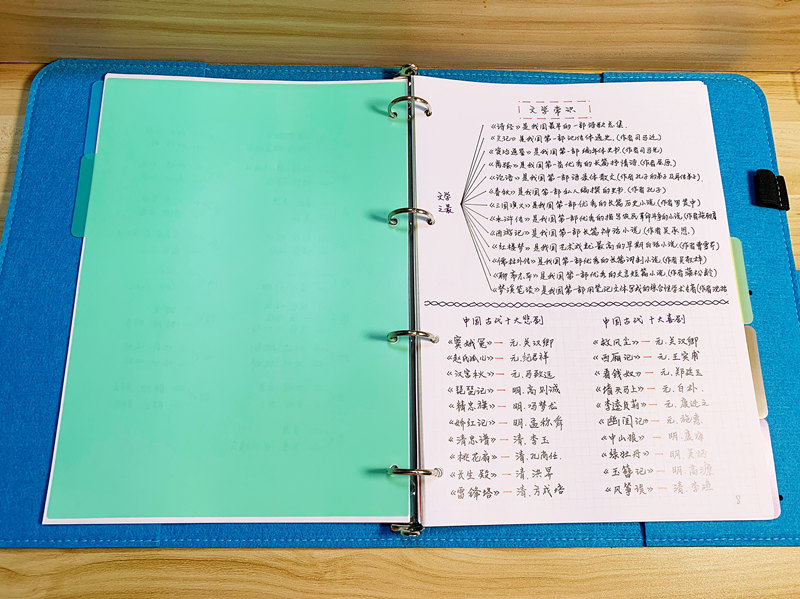 文学常识
《诗经》是我国最早的一部诗歌总集.
《史记》是我国第一部纪传体通史.(作者司马迁)
《资治通鉴》是我国第一部编年体史书(作者司马光)
《离骚》是我国第一首优秀的长篇抒情诗.(作者屈原)
《论语》是我国第一部语录体散文(作者孔子的弟子及再传弟子)
《春秋》是我国第一部私人编撰的史书.(作者孔子)
文学
之最
《三国演义》是我国第一部优秀的长篇历史小说(作者罗贯中)
《水浒传》是我国第一部优秀的指导农民革命斗争的小说.(作者施耐庵
《西游记》是我国第一部长篇神话小说.(作者吴承恩.)
《红楼梦》是我国艺术成就最高的早期白话小说.(作者曹雪芹)
《儒林外传》是我国第一部优秀的长篇讽刺小说(作者吴敬梓)
《聊斋志异》是我国第一部优秀的文言短篇小说.(作者蒲松龄)
《梦溪笔谈》是我国第一部用笔记文体写成的综合性学术专著(作者沈括
中国古代十大悲剧
《窦娥冤》一 元.关汉卿
《赵氏孤儿》一元.纪君祥
《汉宫秋》一 元.马致远
《琵琶记》一 明.高则诚
《精忠旗》一 明.冯梦龙
《娇红记》一 明.孟称舜
《清忠谱》一 清.李玉
《桃花扇》一 清.孔尚任.
《长生殿》一 清.洪昇
《雷锋塔》一 清.方成培
中国古代十大喜剧
《救风尘》一 元.关汉卿
《西厢记》一 元.王实甫
《看钱奴》一 元.郑廷玉
《墙头马上》一 元.白朴.
《李逵负荆》一 元.康进之
《幽闺记》一 元.施惠
《中山狼》一 明.康海
《绿牡丹》一 明.吴炳
《玉簪记》一 明.高濂
《风筝误》一 清.李渔
8